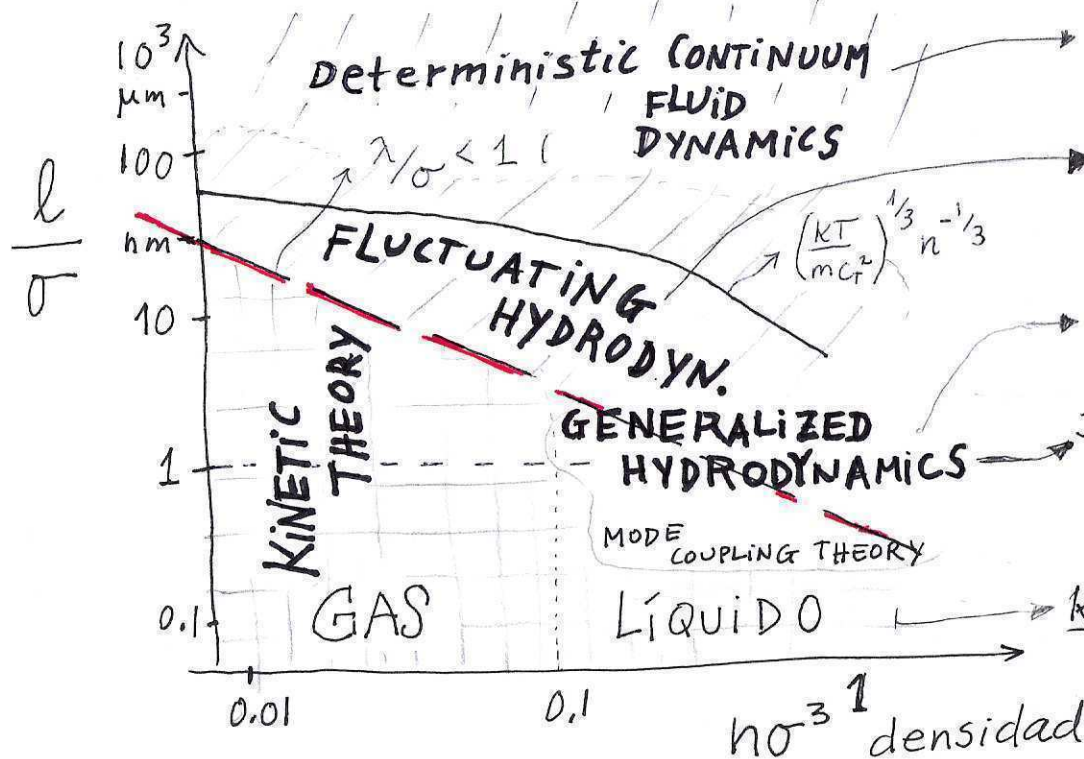 10³
μm
100
nm
10
1
0.1
l/σ
Deterministic CONTINUUM
FLUID
DYNAMICS
λ/σ < 1
(kT/mc_T²)^1/3 n^-1/3
FLUCTUATING
HYDRODYN.
KINETIC
THEORY
GENERALIZED
HYDRODYNAMICS
MODE
COUPLING THEORY
GAS
LÍQUIDO
0.01
0,1
1
nσ³ densidad